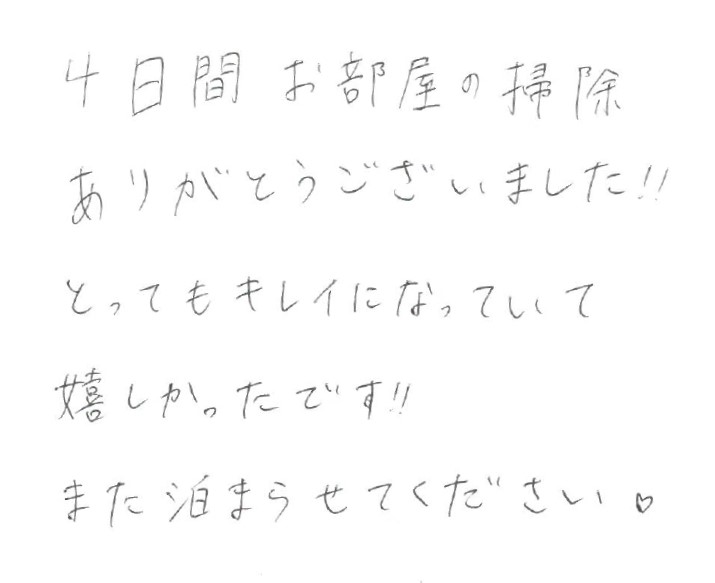 4日間 お部屋の掃除
ありがとうございました!!
とってもキレイになっていて
嬉しかったです!!
また泊まらせてください♡